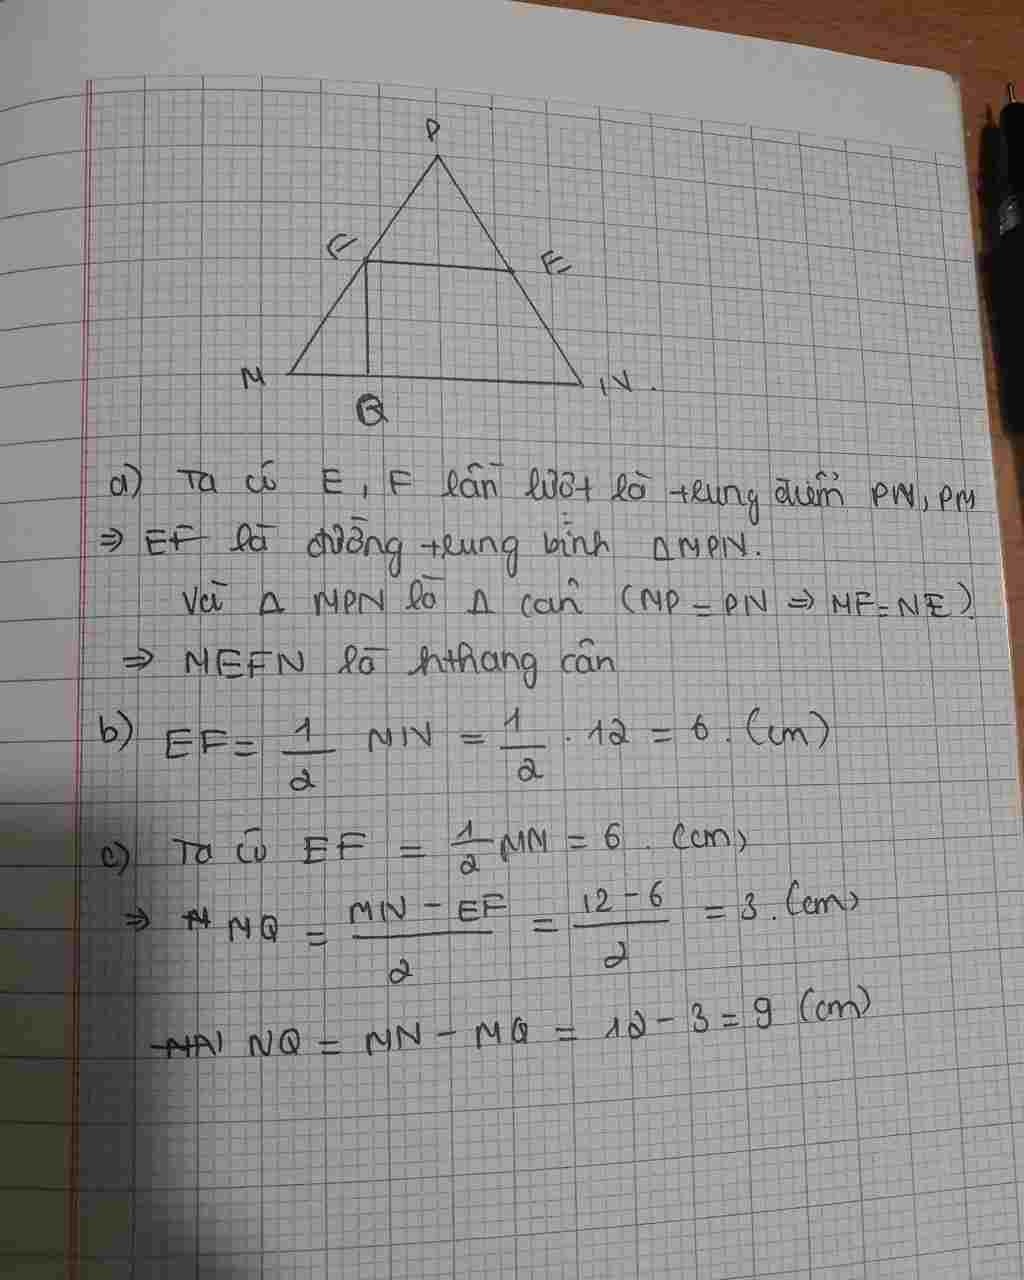 P
F
E
M
N.
Q
a) Ta có E, F lần lượt là trung điểm PN, PM
⇒ EF là đường trung bình ΔMPN.
Và Δ MPN là Δ cân (MP = PN ⇒ MF = NE)
⇒ MEFN là hthang cân
b) EF = 1/2 MN = 1/2 . 12 = 6 . (cm)
c) Ta có EF = 1/2 MN = 6 . (cm)
⇒ MQ = (MN - EF)/2 = (12 - 6)/2 = 3 . (cm)
NQ = MN - MQ = 12 - 3 = 9 (cm)